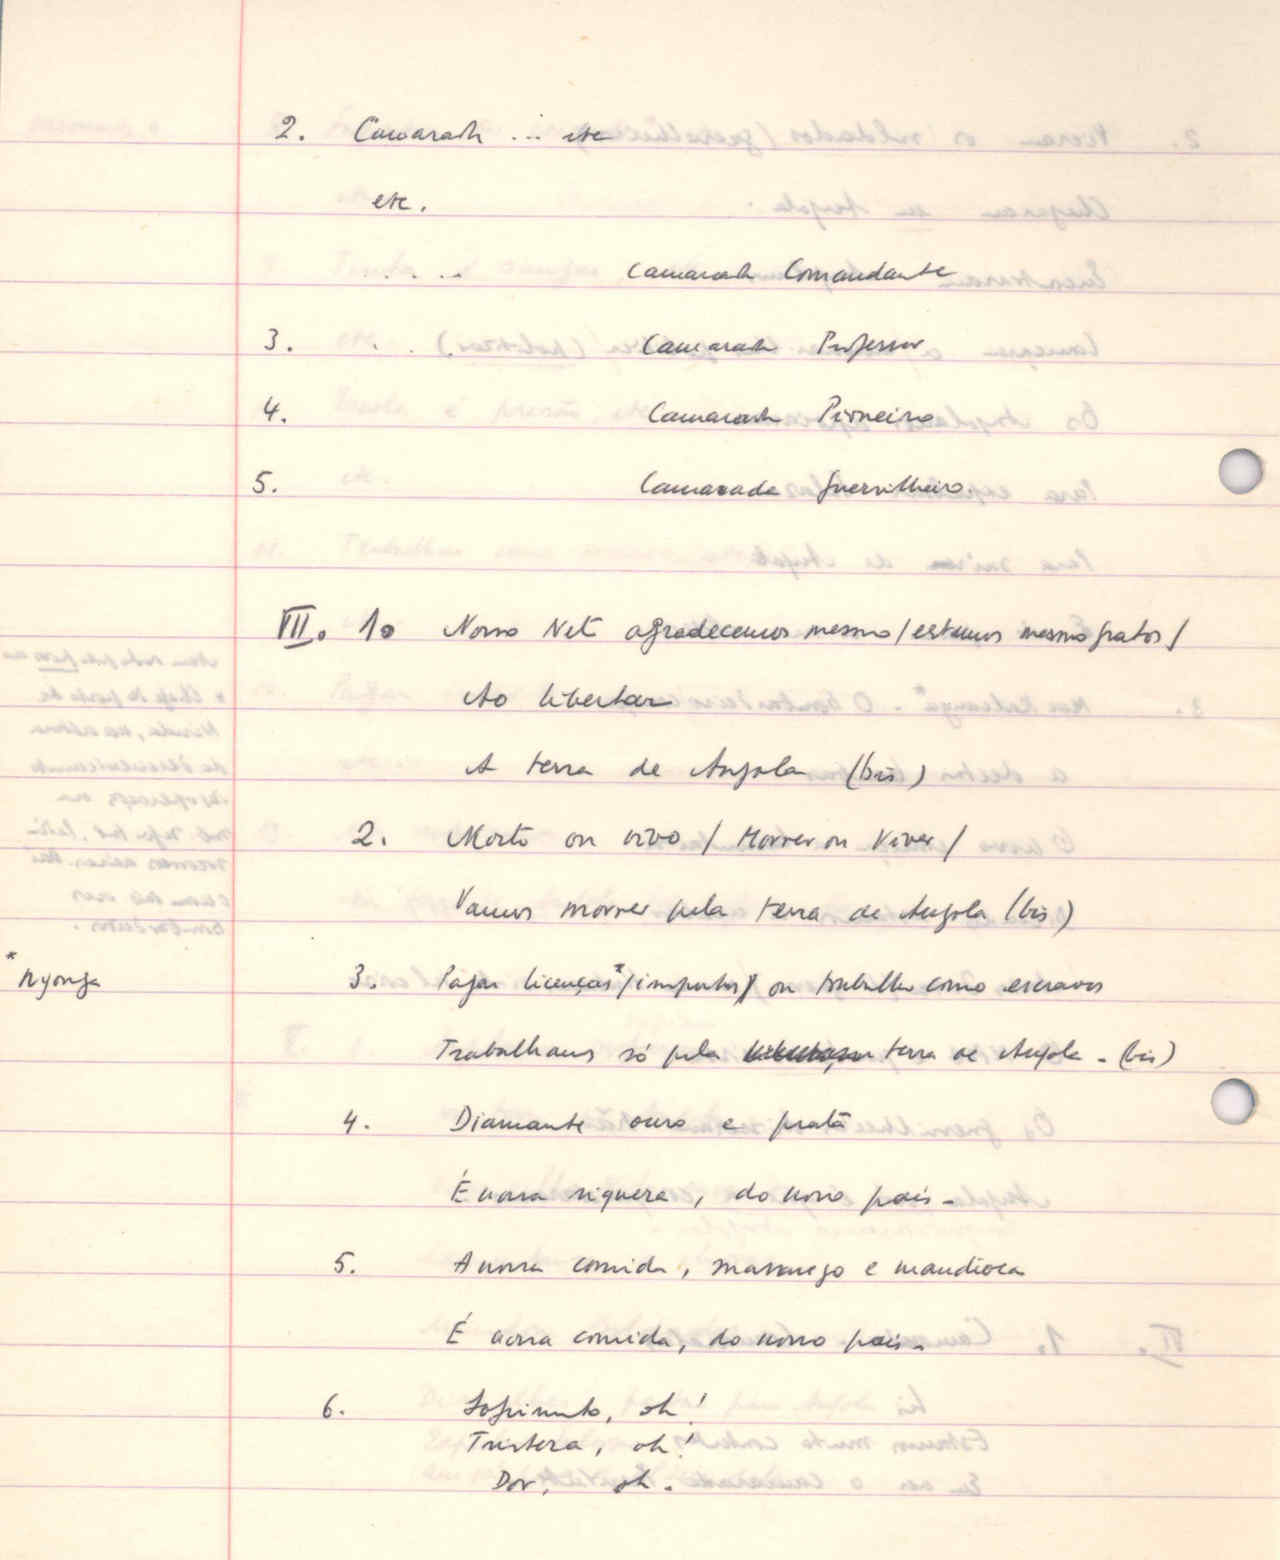 2. Camarada ... etc
etc.
..... Camarada Comandante
3. . . . Camarada Professor
4. Camarada Pioneiro
5. Camarada Guerrilheiro.
VII. 1. Nosso Neto agradecemos mesmo / estamos mesmo gratos /
Ao libertar
A terra de Angola (bis)
2. Morto ou vivo / Morrer ou Viver /
Vamos morrer pela terra de Angola (bis)
* nyonga
3. Pagar licenças* / impostos / ou trabalho como escravos
Trabalhamos só pela terra de Angola - (bis)
4. Diamante ouro e prata
É nossa riqueza, do nosso país -
5. A nossa comida, massango e mandioca
É nossa comida, do nosso país -
6. Sofrimento, oh!
Tristeza, oh!
Dor, oh.